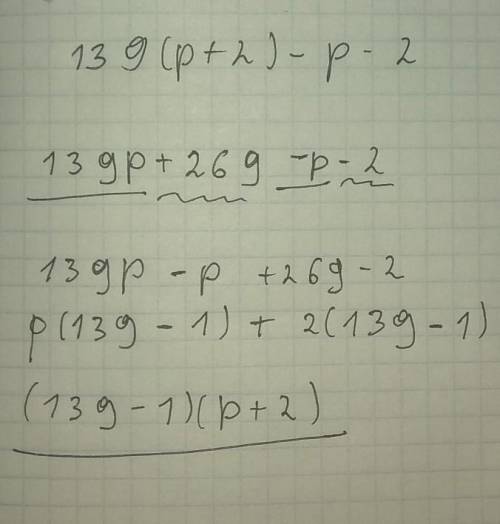 13g(p+2)-p-2
13gp+26g-p-2
13gp-p+26g-2
p(13g-1)+2(13g-1)
(13g-1)(p+2)